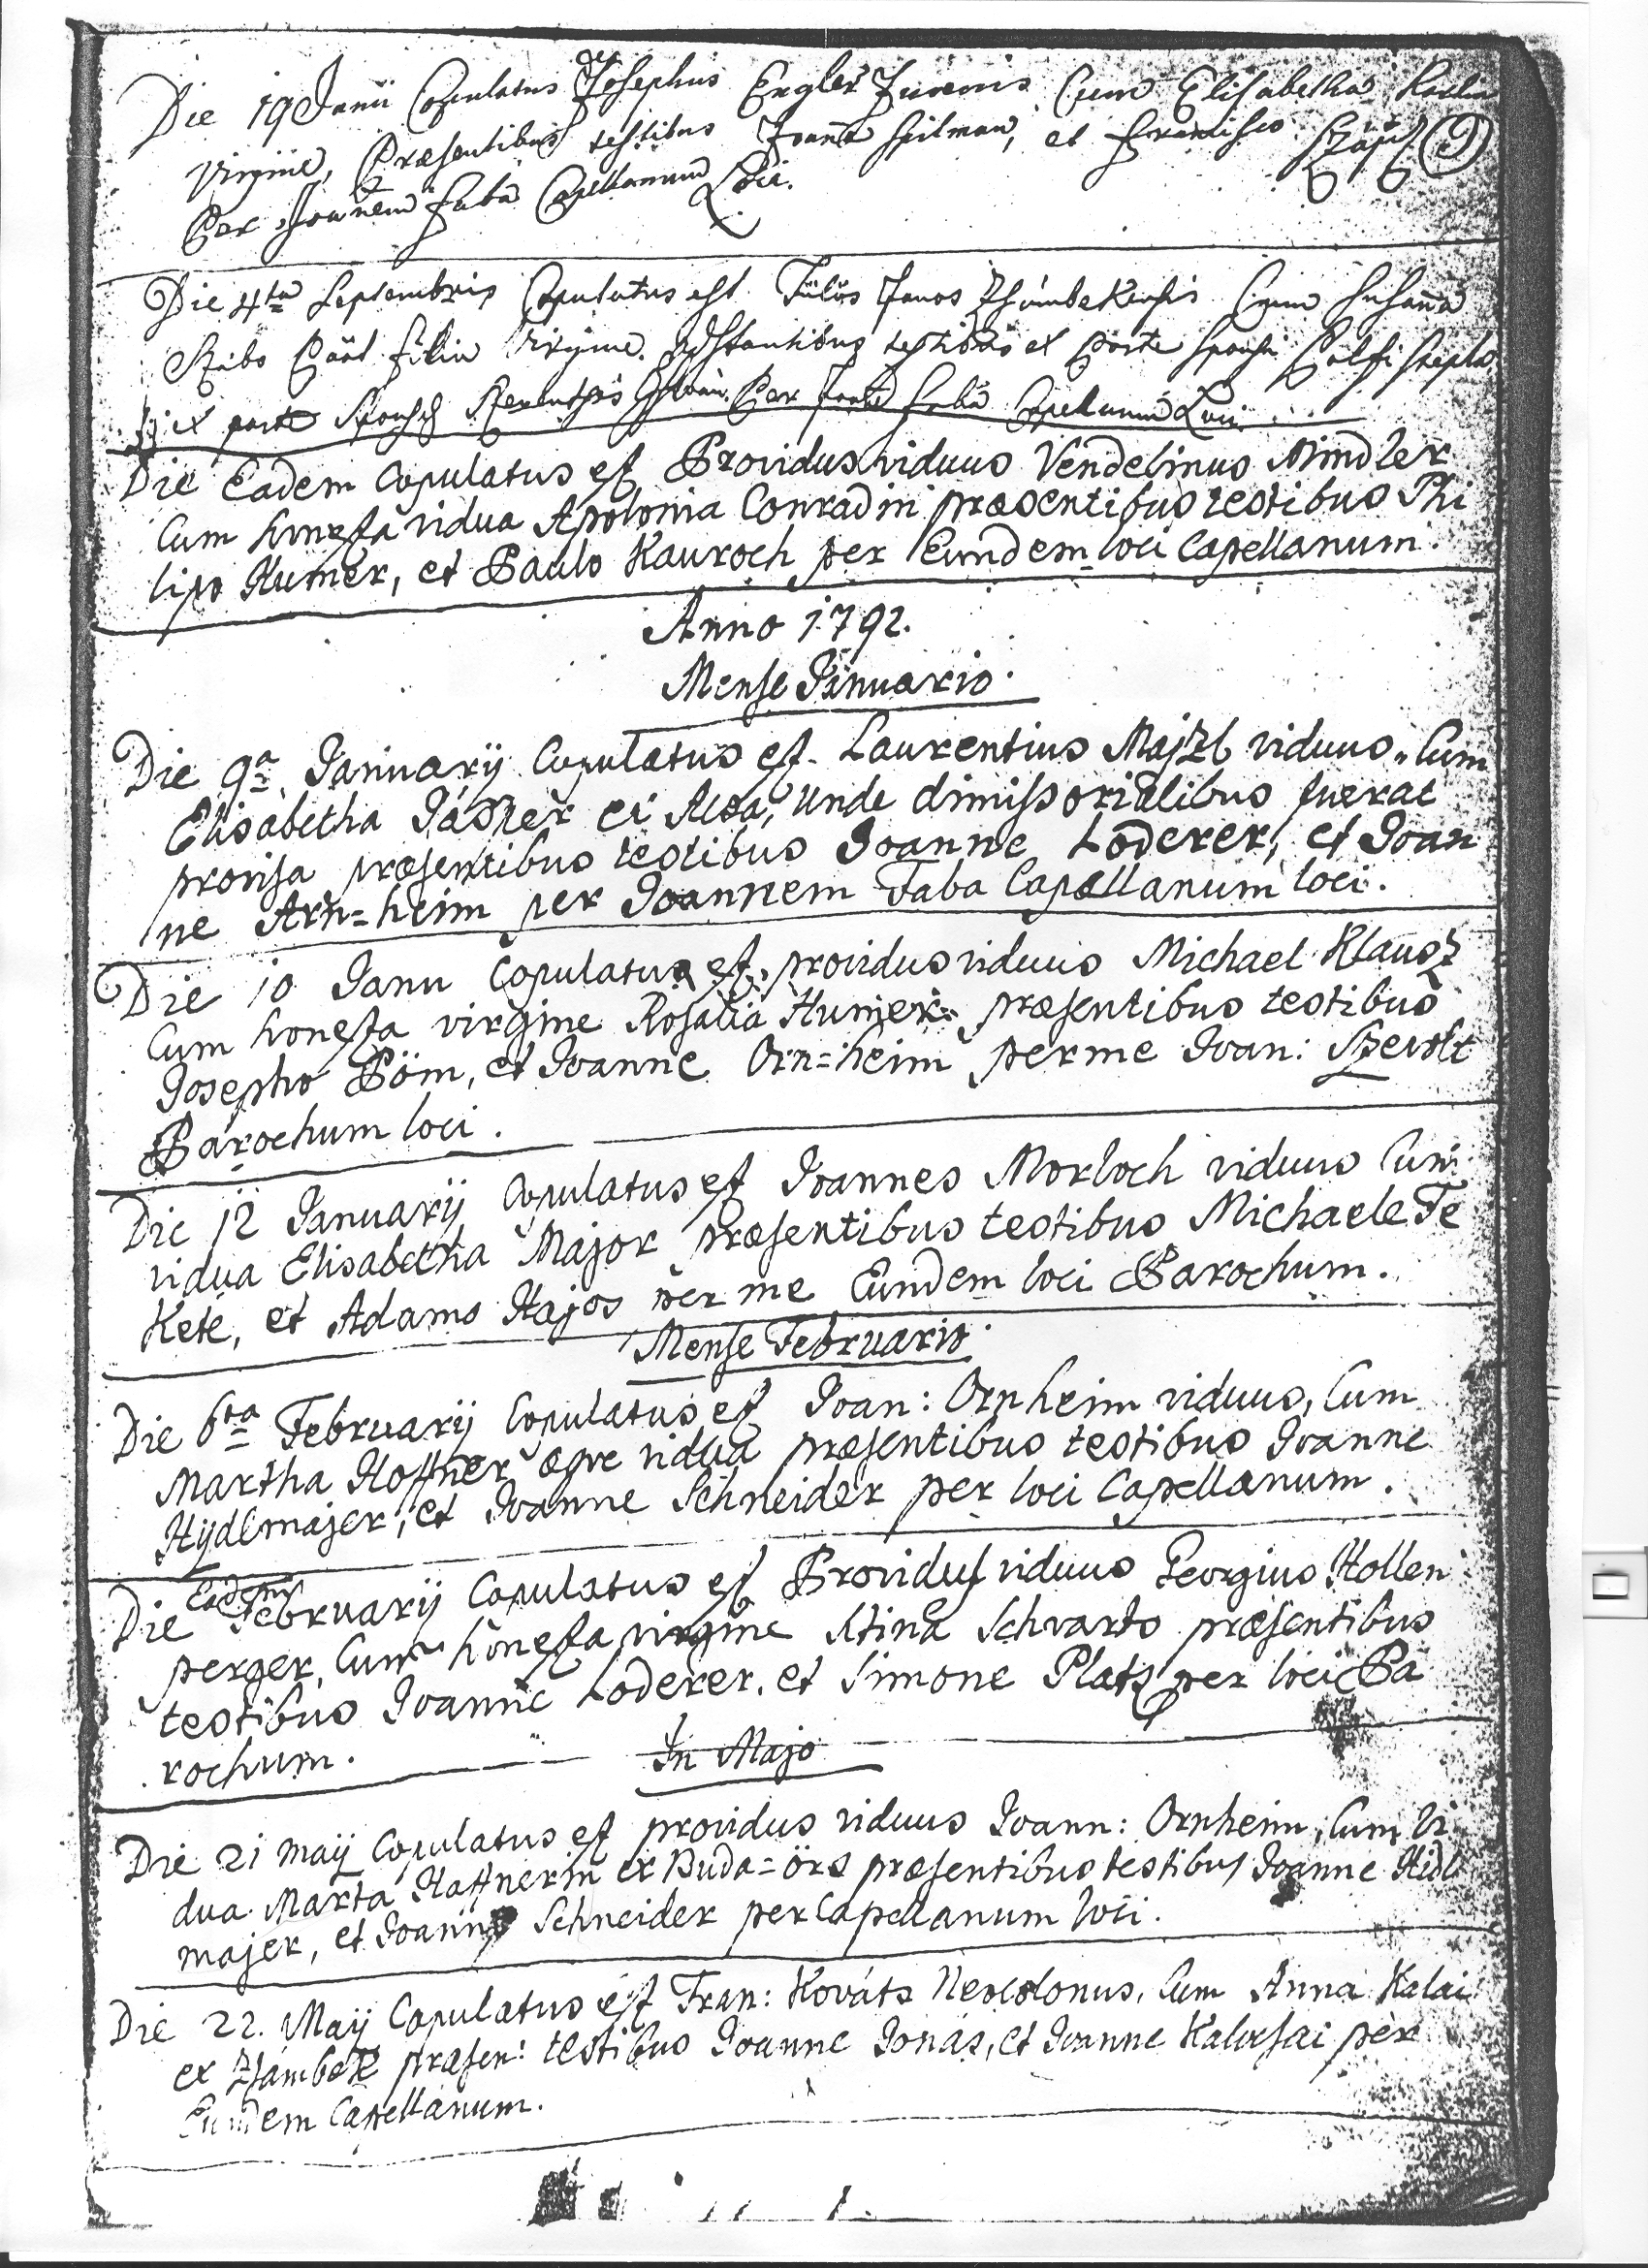 Die 19 Junii Copulatus est Josephus Engler Juvenis Cum Elisabetha
Virgine, Præsentibus testibus Joanne Spilman, et Francisco
Per Joannem Faba Capellanum Loci.
Die 4ta Septembris Copulatus est Janos Cum Susanna
Szabo Filia Virgine. Adstantibus testibus ex parte Sponsi Palfi
ex parte Sponsæ Per Faba Capellanum Loci
Die Eadem Copulatus est Providus viduus Vendelinus Mindler
Cum honesta vidua Apolonia Conradin præsentibus testibus Phi
lipo Humer, et Paulo Kauroch per Eundem loci Capellanum.
Anno 1792.
Mense Januario.
Die 9a Januarij Copulatus est Laurentius Majzl viduus Cum
Elisabetha Jasper unde dimissorialibus fuerat
provisa præsentibus testibus Joanne Loderer, et Joan
ne Arn=heim per Joannem Faba Capellanum loci.
Die 10 Janu Copulatus est providus viduus Michael Klausz
Cum honesta virgine Rosalia Humer præsentibus testibus
Josepho Böm, et Joanne Orn=heim per me Joan: Szevolt
Parochum loci.
Die 12 Januarij Copulatus est Joannes Morloch viduus Cum
vidua Elisabetha Major præsentibus testibus Michaele Fe
kete, et Adamo Hajos per me Eundem loci Parochum.
Mense Februario.
Die 6ta Februarij Copulatus est Joan: Ornheim viduus, Cum
Martha Hoffner æque vidua præsentibus testibus Joanne
Hydlmajer, et Joanne Schneider per loci Capellanum.
Die Eadem Februarij Copulatus est Providus viduus Georgius Hollen
perger, Cum honesta virgine Schvarts præsentibus
testibus Joanne Loderer, et Simone Plats per loci Pa
rochum.
In Majo
Die 21 Maij Copulatus est providus viduus Joann: Ornheim, Cum Vi
dua Marta Haffnerin ex Buda=örs præsentibus testibus Joanne Hidl
majer, et Joanne Schneider per Capellanum loci.
Die 22. Maij Copulatus est Fran: Kováts Neocolonus, Cum Anna Kalai
ex Zsámbek præsen: testibus Joanne Jonás, et Joanne per
Eundem Capellanum.